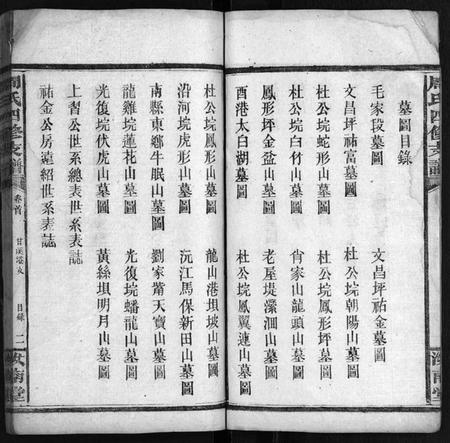 周氏四修支譜
墓圖目錄
毛家段墓圖
文昌坪祐金墓圖
文昌坪祐富墓圖
杜公垸朝陽山墓圖
杜公垸蛇形山墓圖
杜公垸鳳形坪墓圖
杜公垸白竹山墓圖
肖家山龍頭山墓圖
鳳形坪金盆山墓圖
老屋堤瀠洄山墓圖
酉港太白湖墓圖
杜公垸鳳翼連山墓圖
杜公垸鳳形山墓圖
龍山港垻坡山墓圖
沿河垸虎形山墓圖
沅江馬保新田山墓圖
南縣東鄉牛眠山墓圖
劉家觜天寶山墓圖
龍雞垸蓮花山墓圖
光復垸蟠龍山墓圖
光復垸伏虎山墓圖
黃絲垻明月山墓圖
上習公世系總表世系表誌
祐金公房灘紹世系表誌
周氏四修支譜
卷首
目錄
二
汝南堂